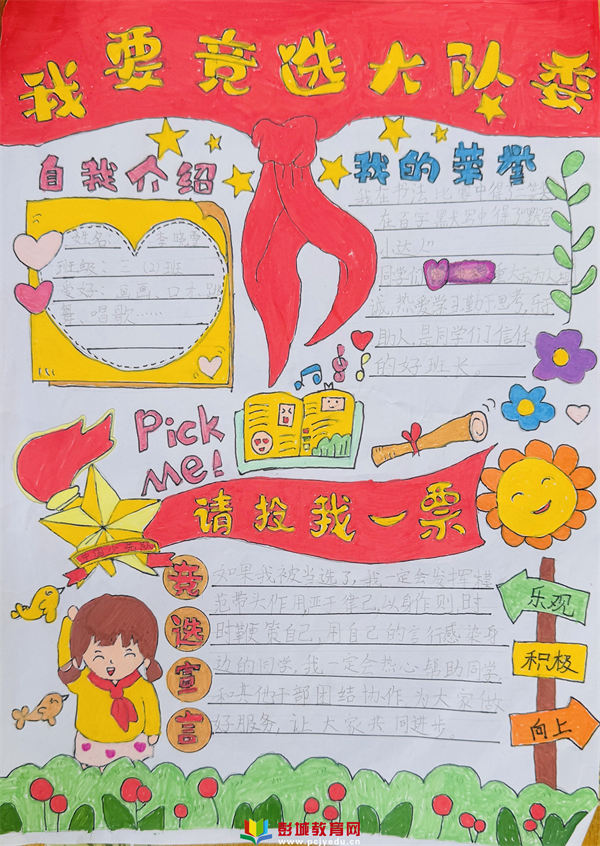 我要竞选大队委
自我介绍
姓名：
班级：三（2）班
爱好：画画、口才、跳
舞、唱歌……
我的荣誉
我在书法比赛中得
在百字
小达人
同学们
诚，热爱学习勤于思考，乐于
助人，是同学们信任
的好班长
Pick
Me!
请投我一票
竞选宣言
如果我被当选了，我一定会发挥模
范带头作用，严于律己，以身作则，时
时鞭策自己，用自己的言行感染身
边的同学，我一定会热心帮助同学
和其他干部团结协作，为大家做
好服务，让大家共同进步
乐观
积极
向上
彭城教育网
www.pcjyedu.cn